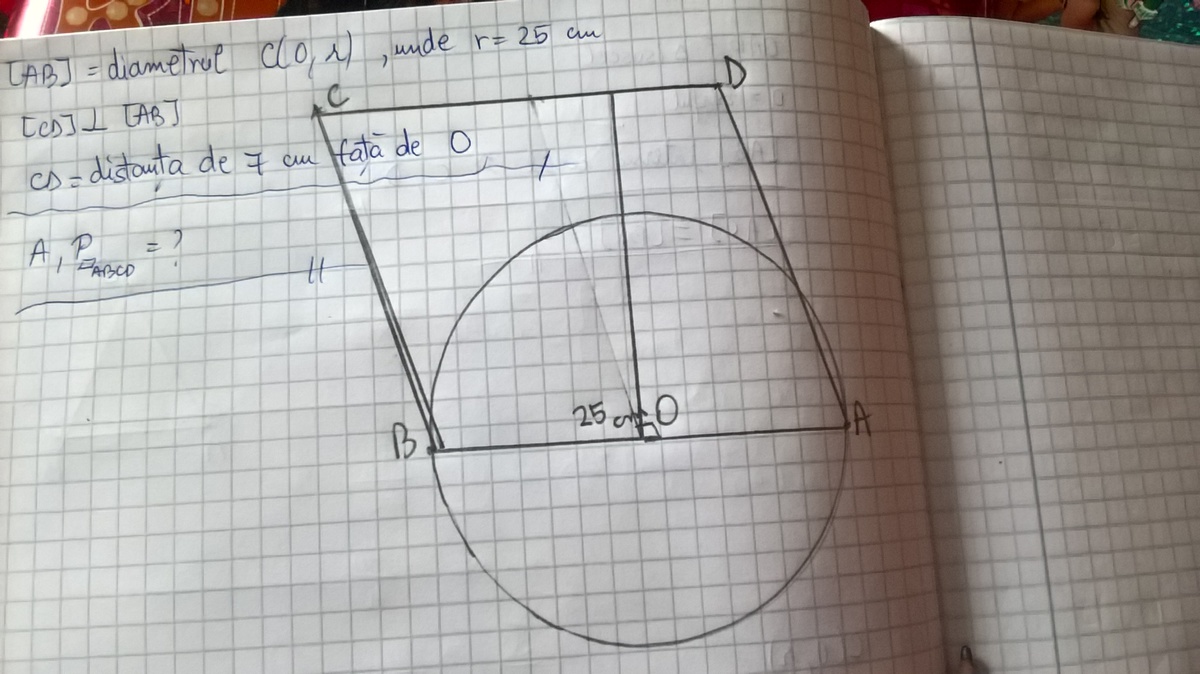 [AB] = diametrul C(O, r), unde r = 25 cm
[CD] ⊥ [AB]
CD = distanța de 7 cm față de O
A, P ABCD = ?
C
D
25 cm
O
A
B